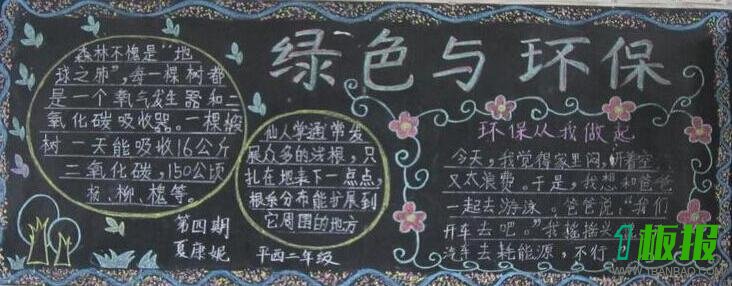 绿色与环保
森林不愧是“地
球之肺”,每一棵树都
是一个氧气发生器和二
氧化碳吸收器。一棵椴
树一天能吸收16公斤
二氧化碳,150公顷
杨、柳、槐等。
仙人掌通常发
展众多的浅根,只
扎在地表下一点点,
根系分布能扩展到
它周围的地方
第四期
夏康妮
平西二年级
环保从我做起
今天,我觉得家里闷,听着空
又太浪费。于是,我想和爸爸
一起去游泳。爸爸说:“我们
开车去吧。”我摇摇头
汽车去耗能源,不行
1板报
WWW.1BANBAO.COM